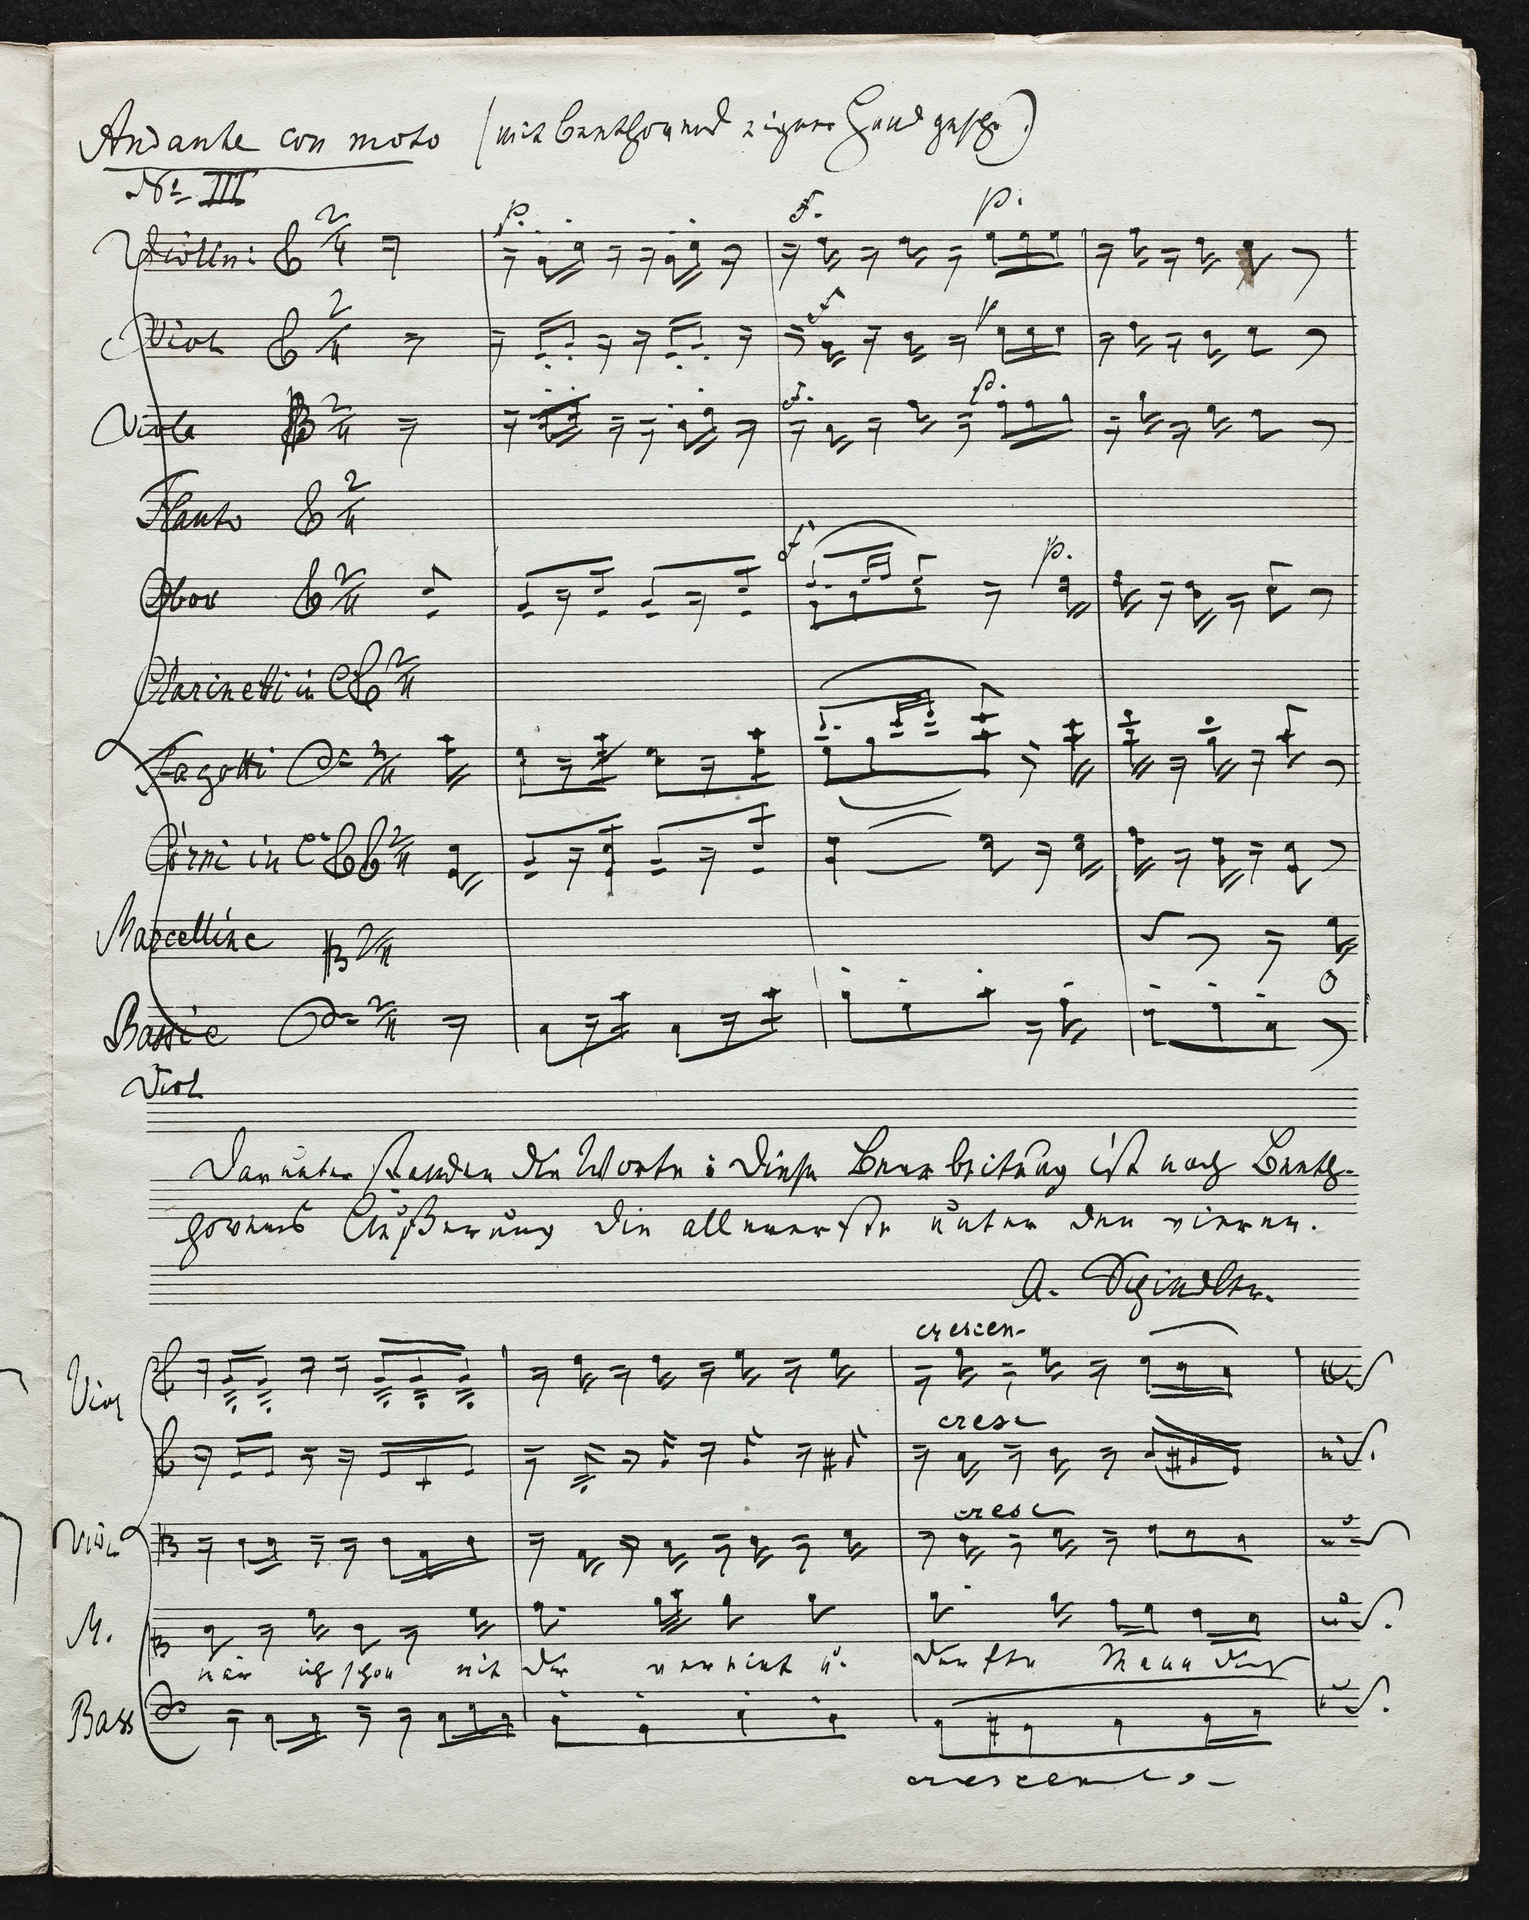 Andante con moto (mit Beethovens eigner Hand gesch.)
No III
p. f. p.
Violini
f p
Viol
f. p.
Viola
Flauto
f p.
Oboe
Clarinetti in C
Fagotti
Corni in C
Marcelline
Bassi e
Viol
Darunter standen die Worte: Diese Bearbeitung ist nach Beeth-
hovens Äußerung die allererste unter den vieren.
A. Schindler.
crescen-
Viol
cresc
cresc
Viol
M.
wär ich schon mit dir vereint u. dürfte Mann dich
Bass
crescendo